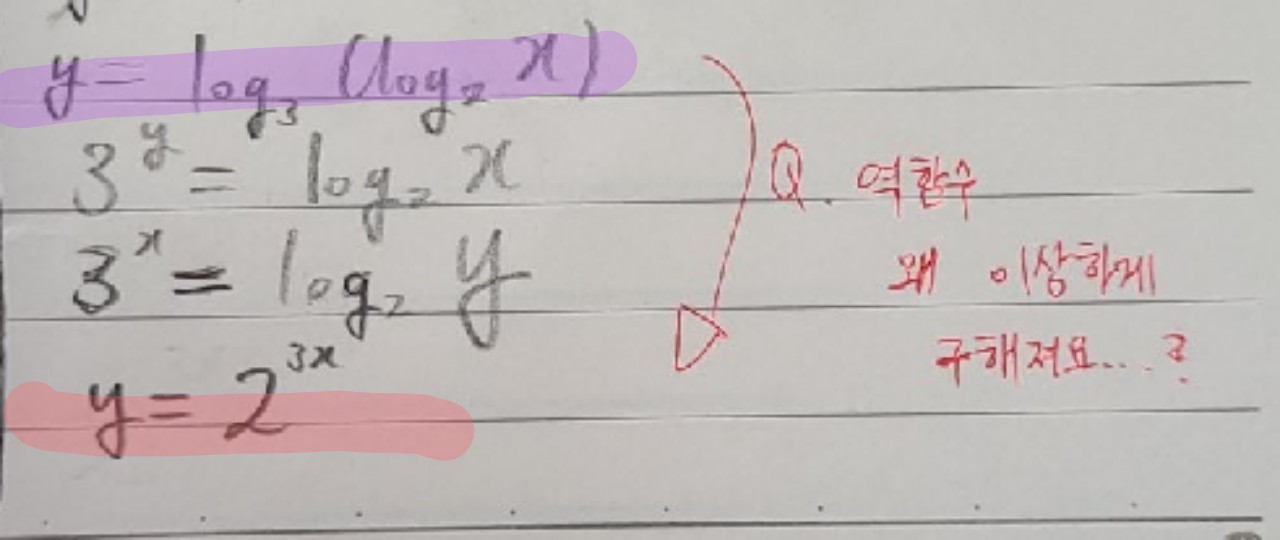 y = log₃ (log₂ x)
3^y = log₂ x
3^x = log₂ y
y = 2^3x
Q. 역함수
왜 이상하게
구해져요...?